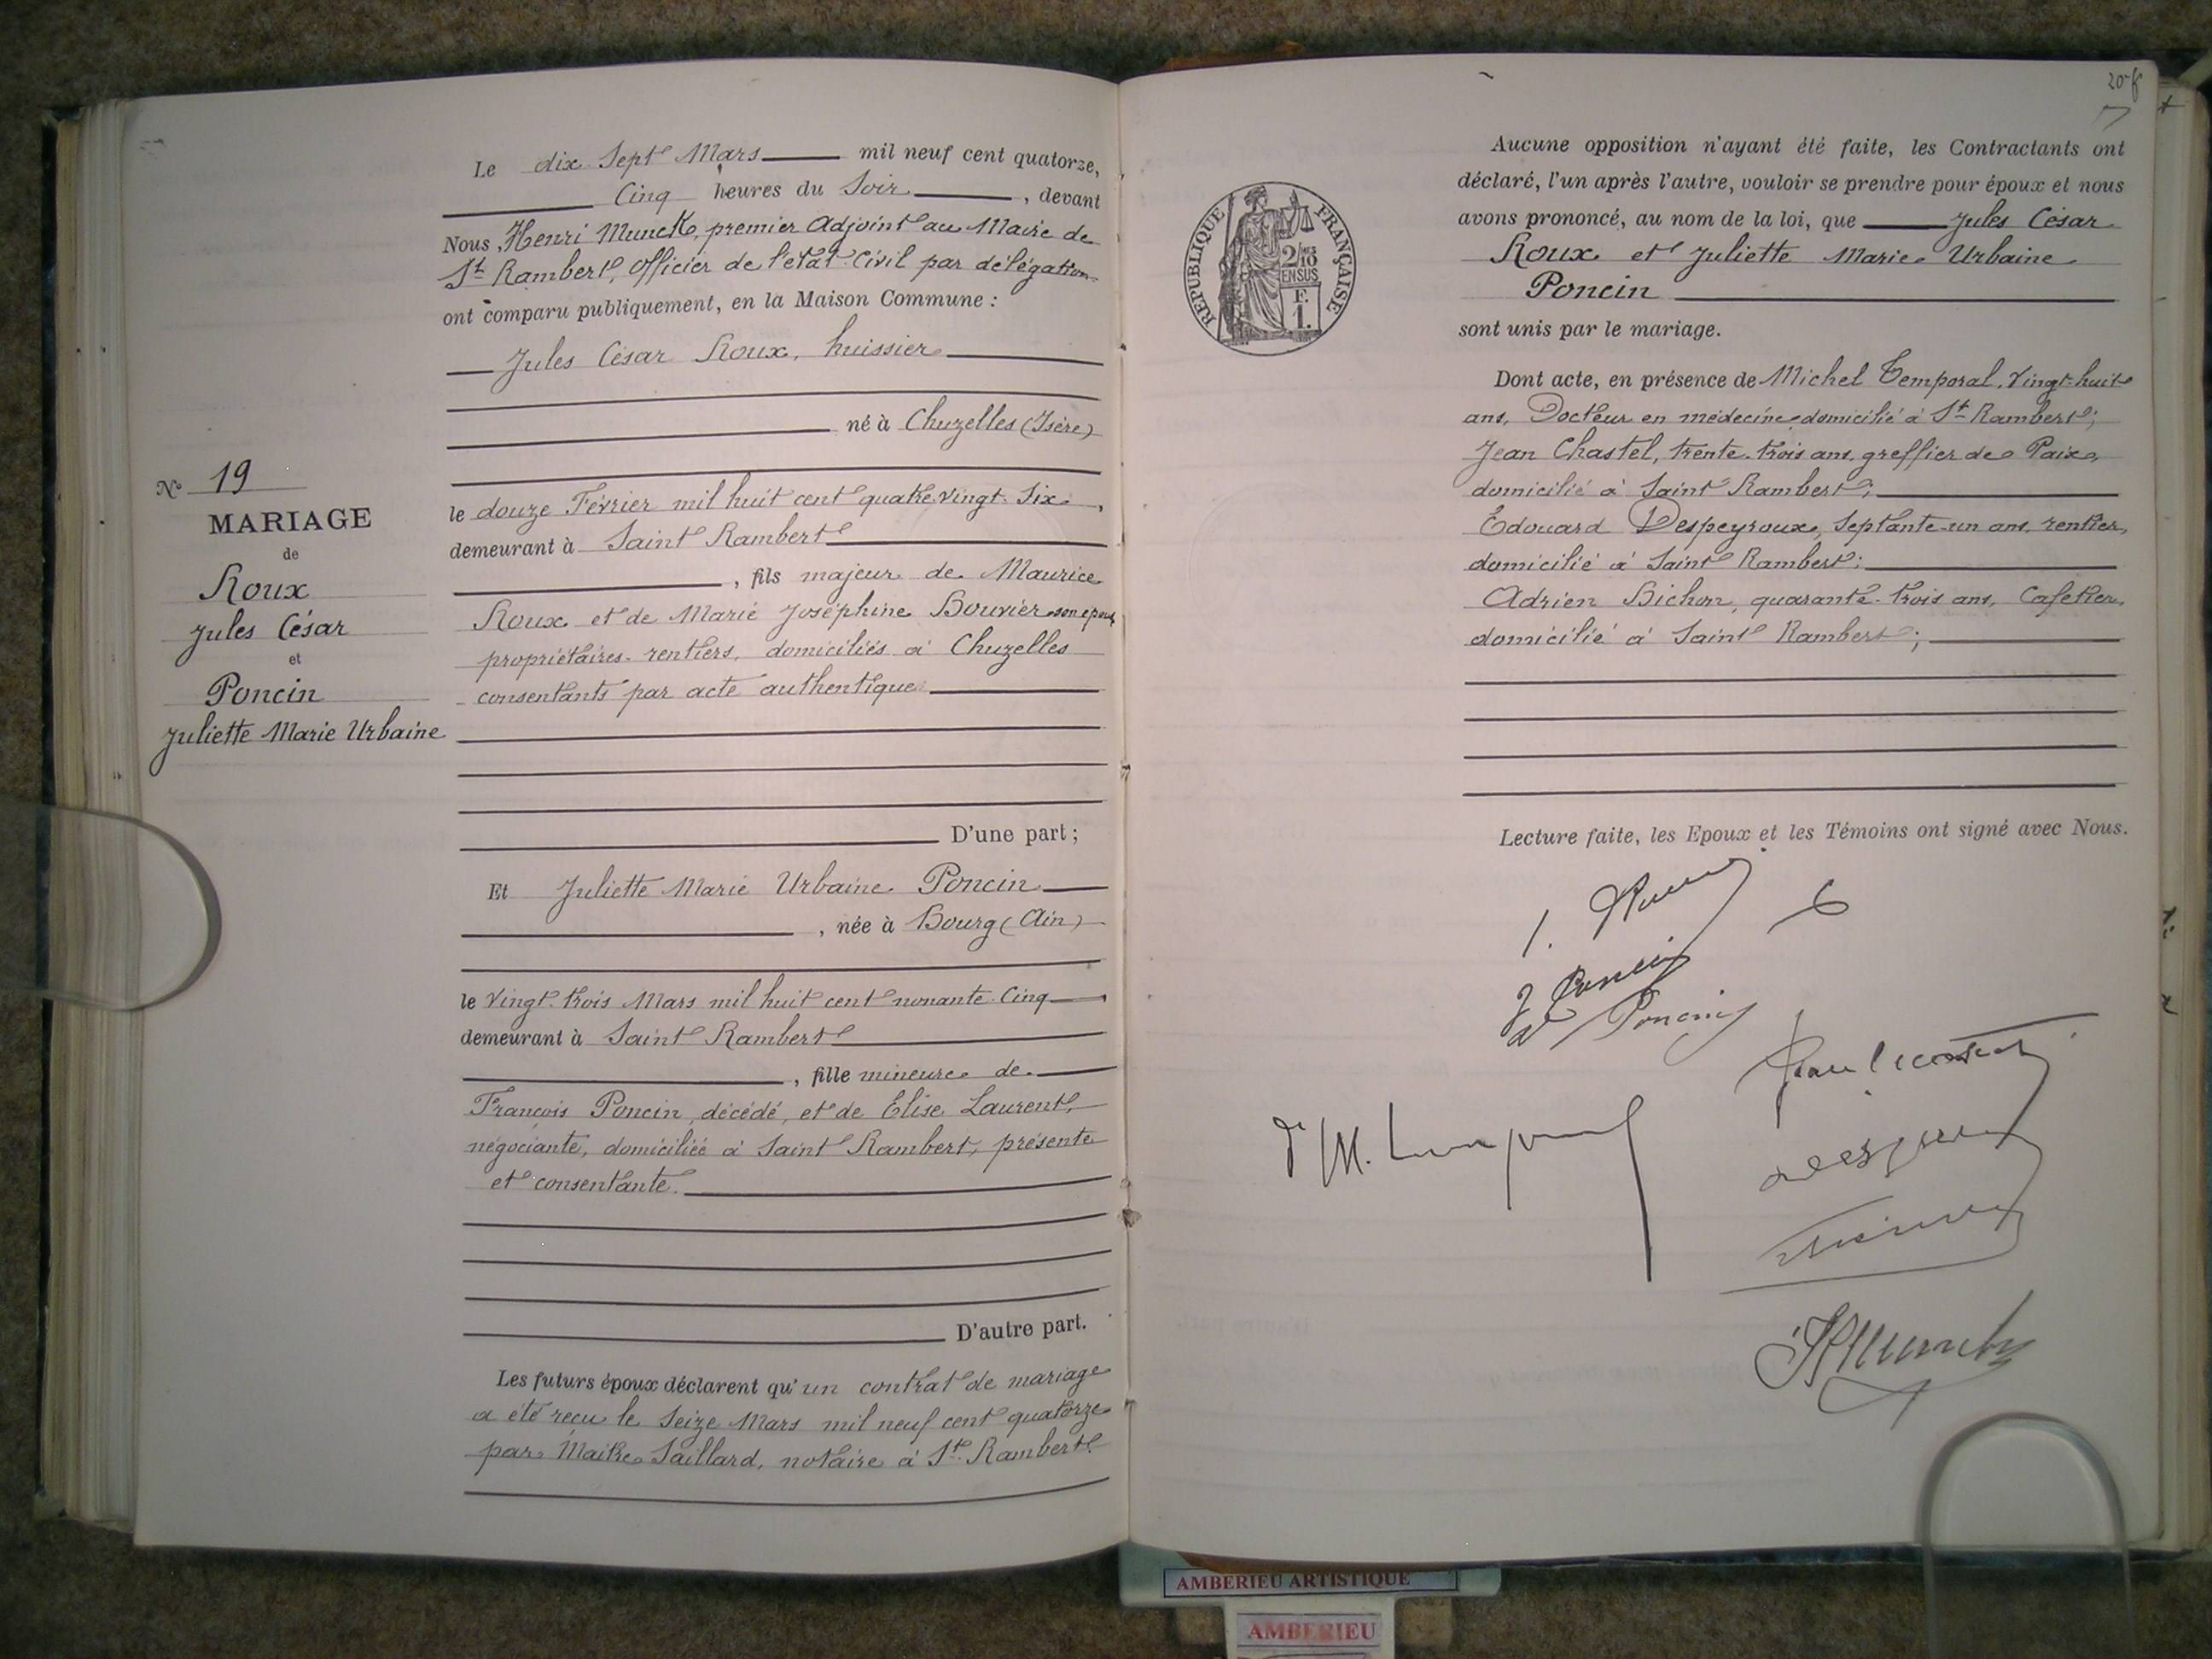 Le dix Sept Mars mil neuf cent quatorze,
Cinq heures du Soir, devant
Nous Henri Munck, premier Adjoint au Maire de
St Rambert, Officier de l'état-Civil par délégation
ont comparu publiquement, en la Maison Commune :
Jules César Roux, huissier
né à Chuzelles (Isère)
le douze Février mil huit cent quatre vingt-Six,
demeurant à Saint Rambert
, fils majeur de Maurice
Roux et de Marie Joséphine Bouvier son épouse
propriétaires-rentiers, domiciliés à Chuzelles
consentants par acte authentique
D'une part ;
No 19
MARIAGE
de
Roux
Jules César
et
Poncin
Juliette Marie Urbaine
Et Juliette Marie Urbaine Poncin
, née à Bourg (Ain)
le Vingt-trois Mars mil huit cent nonante-Cinq
demeurant à Saint Rambert
, fille mineure de
François Poncin, décédé, et de Elise Laurent,
négociante, domiciliée à Saint Rambert, présente
et consentante.
D'autre part.
Les futurs époux déclarent qu'un contrat de mariage
a été reçu le Seize Mars mil neuf cent quatorze
par Maître Saillard, notaire à St Rambert
REPUBLIQUE FRANÇAISE
2/10
EN SUS
F.
1.
Aucune opposition n'ayant été faite, les Contractants ont
déclaré, l'un après l'autre, vouloir se prendre pour époux et nous
avons prononcé, au nom de la loi, que Jules César
Roux et Juliette Marie Urbaine
Poncin
sont unis par le mariage.
Dont acte, en présence de Michel Temporal, Vingt-huit
ans, Docteur en médecine domicilié à St Rambert;
Jean Chastel, trente-trois ans, greffier de Paix,
domicilié à Saint Rambert;
Edouard Despeyroux, Septante-un ans, rentier,
domicilié à Saint Rambert;
Adrien Bichon, quarante-trois ans, Cafetier,
domicilié à Saint Rambert;
Lecture faite, les Epoux et les Témoins ont signé avec Nous.
J Poncin
Poncin
AMBERIEU ARTISTIQUE
AMBERIEU